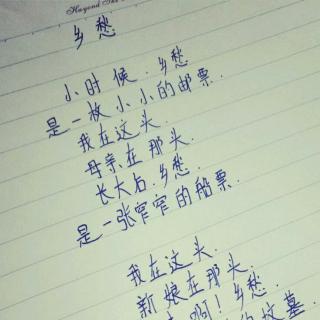 乡愁
小时候.乡愁
是一枚小小的邮票.
我在这头.
母亲在那头.
长大后.乡愁.
是一张窄窄的船票.
我在这头.
新娘在那头.
啊!乡愁.
坟墓.